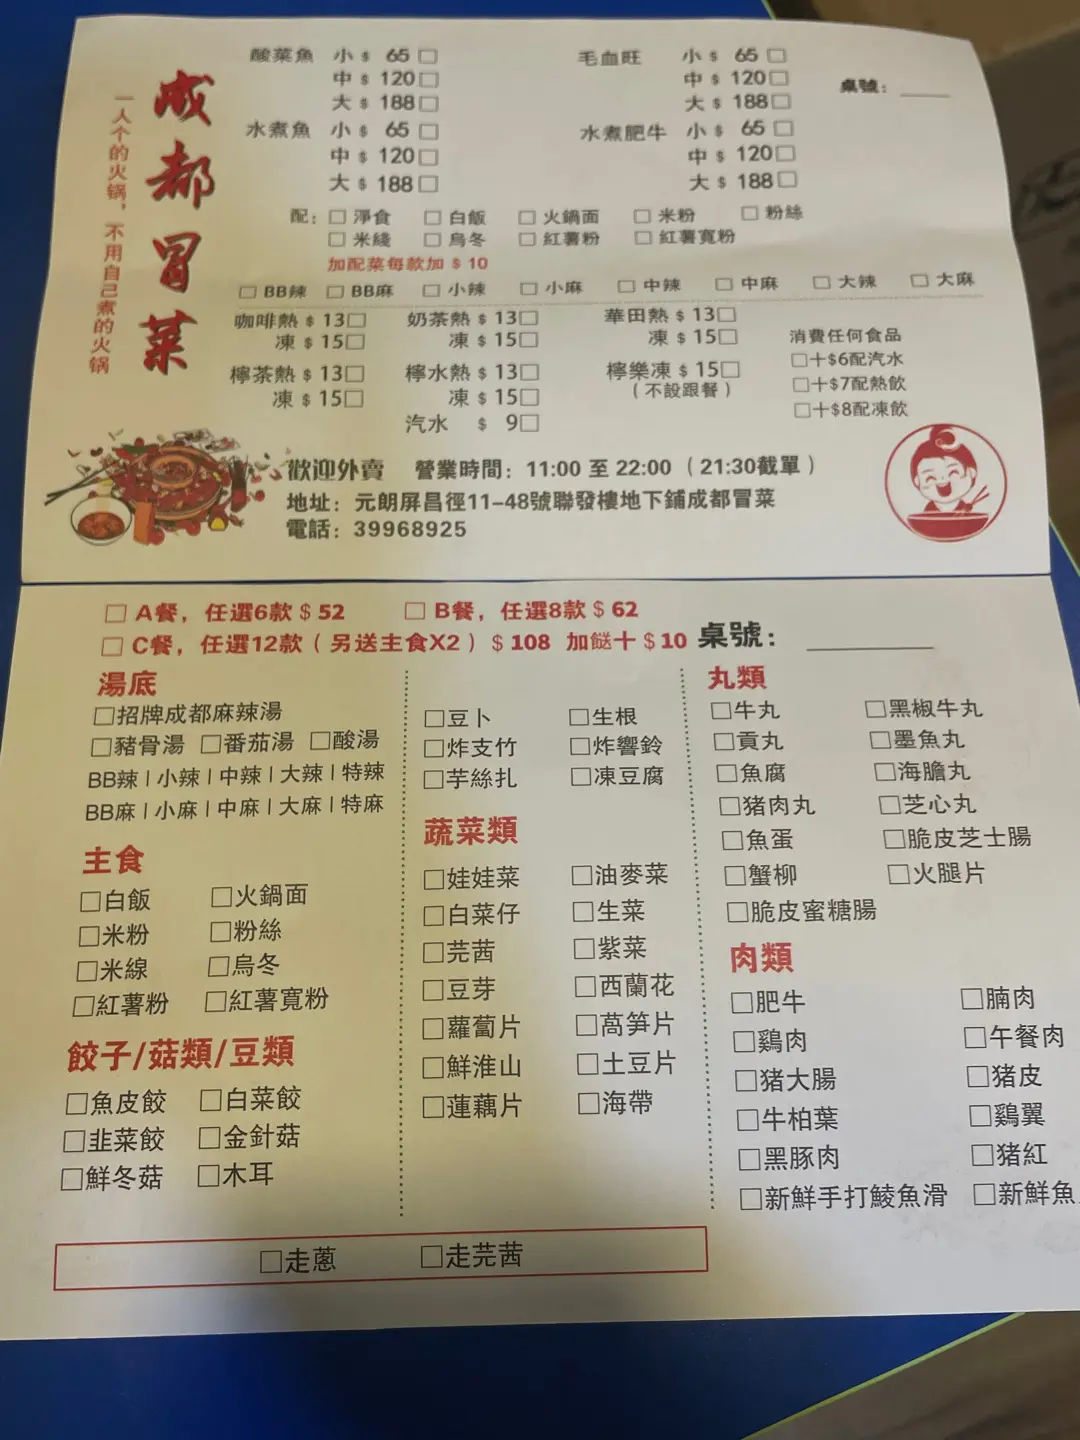 成都冒菜
一人个的火锅，不用自己煮的火锅
酸菜魚 小 $ 65 □ 毛血旺 小 $ 65 □
中 $ 120 □ 中 $ 120 □ 桌號：
大 $ 188 □ 大 $ 188 □
水煮魚 小 $ 65 □ 水煮肥牛 小 $ 65 □
中 $ 120 □ 中 $ 120 □
大 $ 188 □ 大 $ 188 □
配：□ 淨食 □ 白飯 □ 火鍋面 □ 米粉 □ 粉絲
□ 米綫 □ 烏冬 □ 紅薯粉 □ 紅薯寬粉
加配菜每款加 $ 10
□ BB辣 □ BB麻 □ 小辣 □ 小麻 □ 中辣 □ 中麻 □ 大辣 □ 大麻
咖啡熱 $ 13□ 奶茶熱 $ 13□ 華田熱 $ 13□
凍 $ 15□ 凍 $ 15□ 凍 $ 15□ 消費任何食品
□十$6配汽水
檸茶熱 $ 13□ 檸水熱 $ 13□ 檸樂凍 $ 15□ □十$7配熱飲
凍 $ 15□ 凍 $ 15□ （不設跟餐） □十$8配凍飲
汽水 $ 9□
歡迎外賣 營業時間：11:00 至 22:00 （21:30截單）
地址：元朗屏昌徑11-48號聯發樓地下鋪成都冒菜
電話：39968925
□ A餐，任選6款 $ 52 □ B餐，任選8款 $ 62
□ C餐，任選12款（另送主食X2）$ 108 加餸十 $ 10 桌號：
湯底
□招牌成都麻辣湯
□豬骨湯 □番茄湯 □酸湯
BB辣 | 小辣 | 中辣 | 大辣 | 特辣
BB麻 | 小麻 | 中麻 | 大麻 | 特麻
主食
□白飯 □火鍋面
□米粉 □粉絲
□米線 □烏冬
□紅薯粉 □紅薯寬粉
餃子/菇類/豆類
□魚皮餃 □白菜餃
□韭菜餃 □金針菇
□鮮冬菇 □木耳
□豆卜 □生根
□炸支竹 □炸響鈴
□芋絲扎 □凍豆腐
蔬菜類
□娃娃菜 □油麥菜
□白菜仔 □生菜
□芫茜 □紫菜
□豆芽 □西蘭花
□蘿蔔片 □萵笋片
□鮮淮山 □土豆片
□蓮藕片 □海帶
丸類
□牛丸 □黑椒牛丸
□貢丸 □墨魚丸
□魚腐 □海膽丸
□猪肉丸 □芝心丸
□魚蛋 □脆皮芝士腸
□蟹柳 □火腿片
□脆皮蜜糖腸
肉類
□肥牛 □腩肉
□鷄肉 □午餐肉
□猪大腸 □猪皮
□牛柏葉 □鷄翼
□黑豚肉 □猪紅
□新鮮手打鯪魚滑 □新鮮魚
□走蔥 □走芫茜